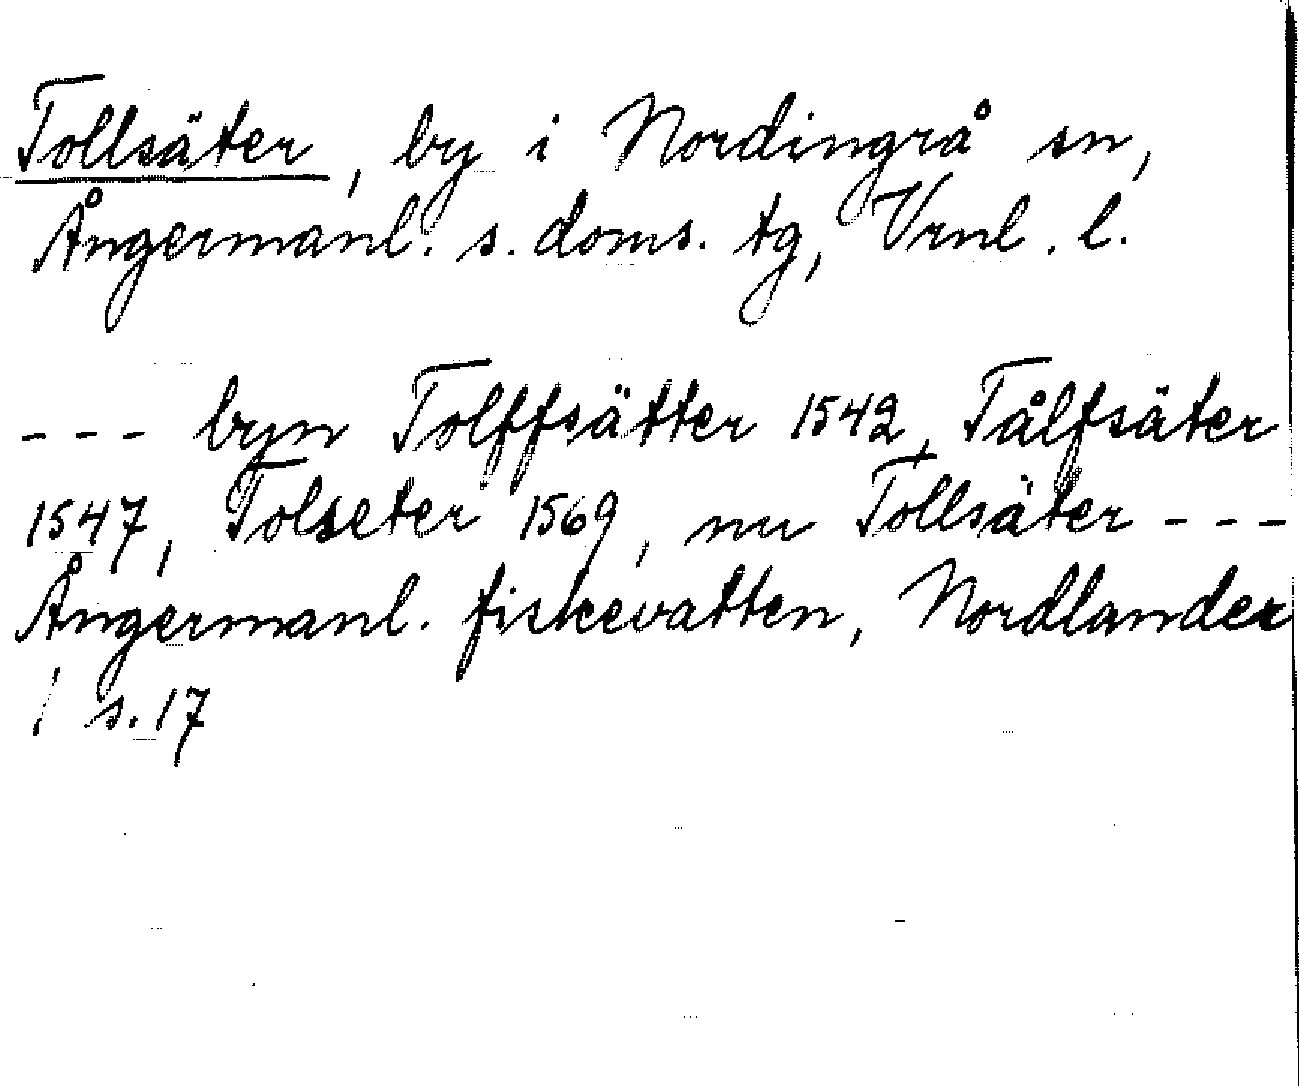 Tollsäter, by i Nordingrå sn,
Ångermanl. s. doms. tg, Vrnl. l.
--- byn Tolffsätter 1542, Tålfsäter
1547, Tolseter 1569, nu Tollsäter ---
Ångermanl. fiskevatten, Nordlander
/ s. 17